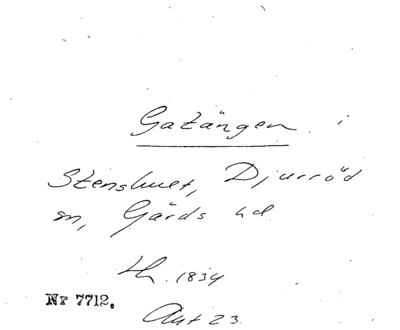 Gatängen i
Stenshult, Djurröd
sn, Gärds hd.
Lh. 1834
Nr 7712.
Akt 23.